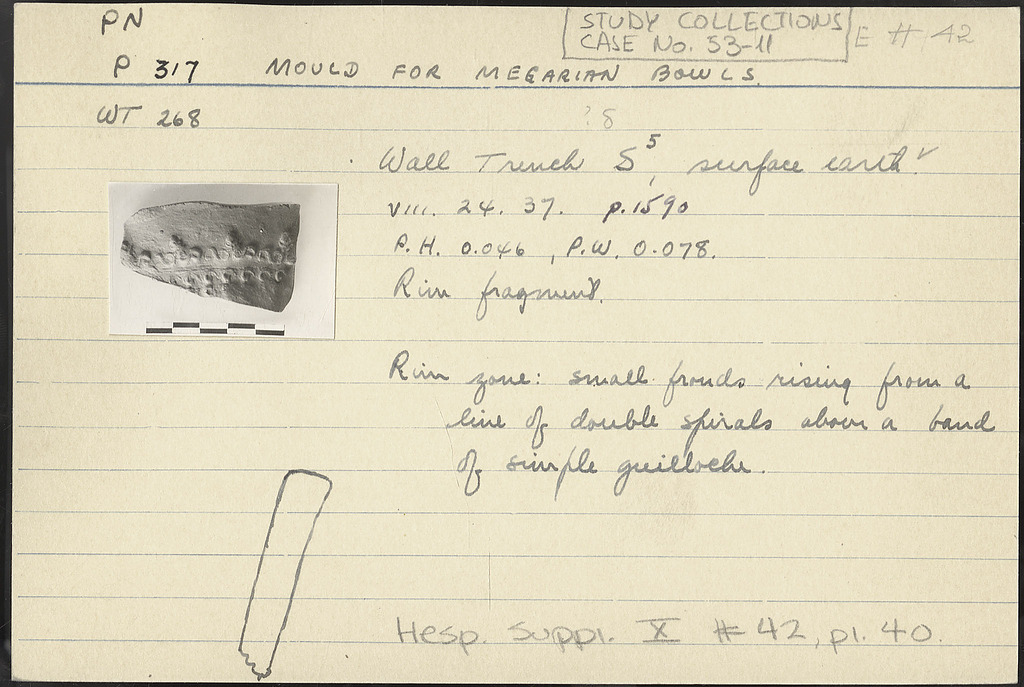 PN
STUDY COLLECTIONS
CASE No. 53-11
E # 42
P 317 MOULD FOR MEGARIAN BOWLS.
WT 268
? δ
Wall Trench S⁵, surface earth ✓
VIII. 24. 37. p. 1590
P.H. 0.046, P.W. 0.078.
Rim fragment.
Rim zone: small fronds rising from a
line of double spirals above a band
of simple guilloche.
Hesp. Suppl. X # 42, pl. 40.